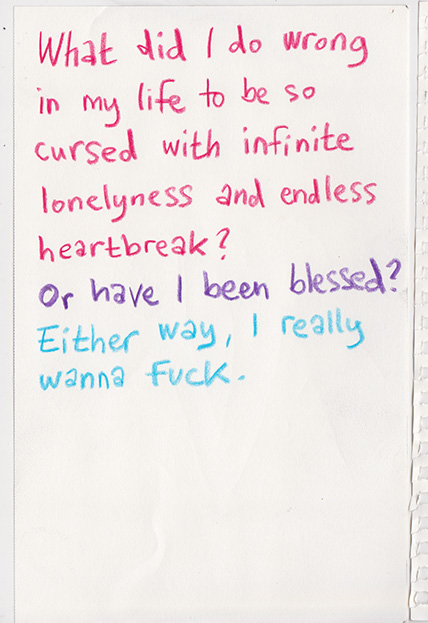 What did I do wrong
in my life to be so
cursed with infinite
lonelyness and endless
heartbreak?
Or have I been blessed?
Either way, I really
wanna fuck.